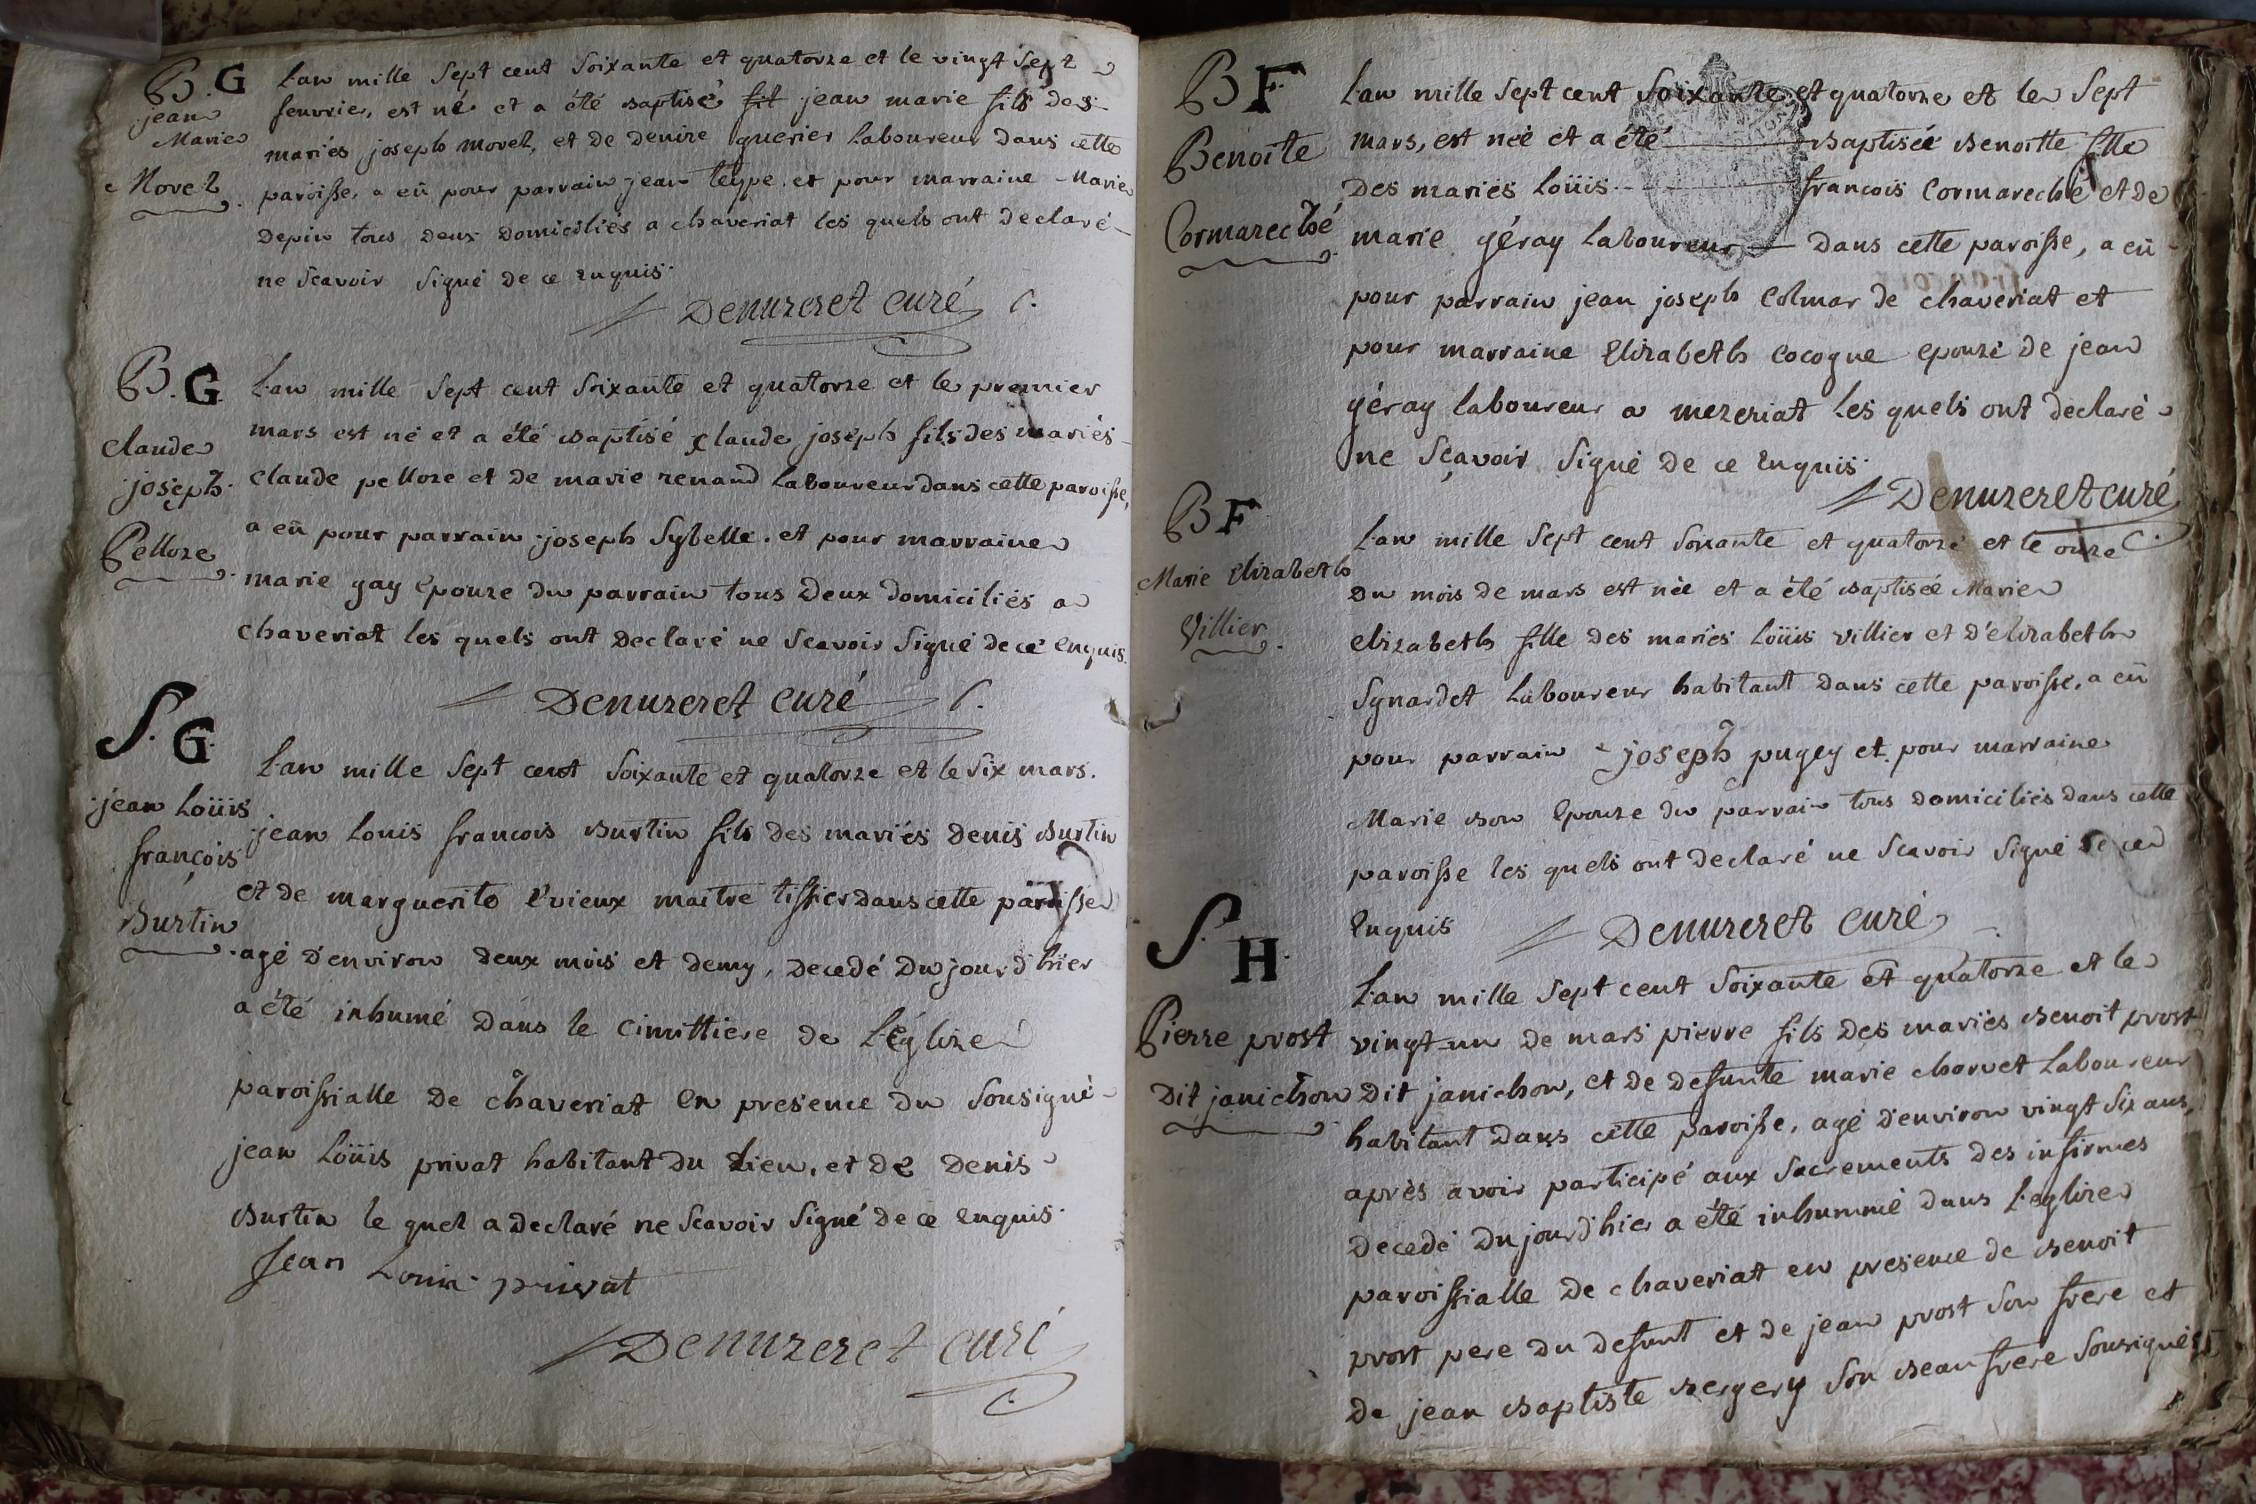 B. G
jean
Marie
Morel
L'an mille Sept cent Soixante et quatorze et le vingt Sept
fevrier, est né et a été baptisé fil jean marie fils des
mariés joseph morel, et de denize guerier Laboureur dans cette
paroisse, a eü pour parrain jean teype et pour marraine Marie
Depin tous deux domiciliés a chaveriat les quels ont declaré
ne scavoir signé de ce enquis.
Denuzeret curé
B. G.
claude
joseph
Pelloze
L'an mille Sept cent Soixante et quatorze et le premier
mars est né et a été baptisé claude joseph fils des mariés
claude pelloze et de marie renaud Laboureur dans cette paroisse,
a eü pour parrain joseph Sybelle. et pour marraine
marie gay Epouze du parrain tous deux domiciliés a
chaveriat les quels ont declaré ne scavoir signé de ce enquis.
Denuzeret curé
S. G.
jean Loüis
françois
Burtin
L'an mille Sept cent Soixante et quatorze et le six mars.
jean Louis francois Burtin fils des mariés denis Burtin
et de marguerite Evieux maitre tissier dans cette paroisse
agé d'environ deux mois et demy, decedé du jour d'hier
a été inhumé dans le cimittiere de L'églize
paroissialle de chaveriat en presence du Sousigné
jean Loüis privat habitant du Lieu, et de denis
Burtin le quel a declaré ne scavoir signé de ce enquis.
Jean Louis privat
Denuzeret curé
B F
Benoite
Cormareché
L'an mille Sept cent Soixante et quatorze et le Sept
mars, est née et a été baptisée Benoitte fille
des mariés Loüis francois Cormareché et de
marie géray Laboureur dans cette paroisse, a eü
pour parrain jean joseph Colmar de chaveriat et
pour marraine Elizabeth Cocogne epouze de jean
géray laboureur a mezeriat Les quels ont declaré
ne sçavoir signé de ce enquis.
Denuzeret curé
B F
Marie Elizabeth
Villier
L'an mille Sept cent Soixante et quatorze et le onze
du mois de mars est née et a été baptisée Marie
elizabeth fille des mariés Loüis villier et d'elizabeth
Synardet Laboureur habitant dans cette paroisse, a eü
pour parrain joseph pugey et pour marraine
Marie bon Epouze du parrain tous domiciliés dans cette
paroisse les quels ont declaré ne scavoir signé de ce
Enquis
Denuzeret curé
S. H.
Pierre prost
Dit janichon
L'an mille Sept cent Soixante et quatorze et le
vingt-un de mars pierre fils des mariés Benoit prost
dit janichon, et de defunte marie charvet Laboureur
habitant dans cette paroisse, agé d'environ vingt six ans,
après avoir participé aux Sacrements des infirmes
decedé du jourd'hier a été inhummé dans L'eglize
paroissialle de chaveriat en presence de Benoit
prost pere du defunt et de jean prost son frere et
de jean Baptiste Bergery son Beau frere Sousignés